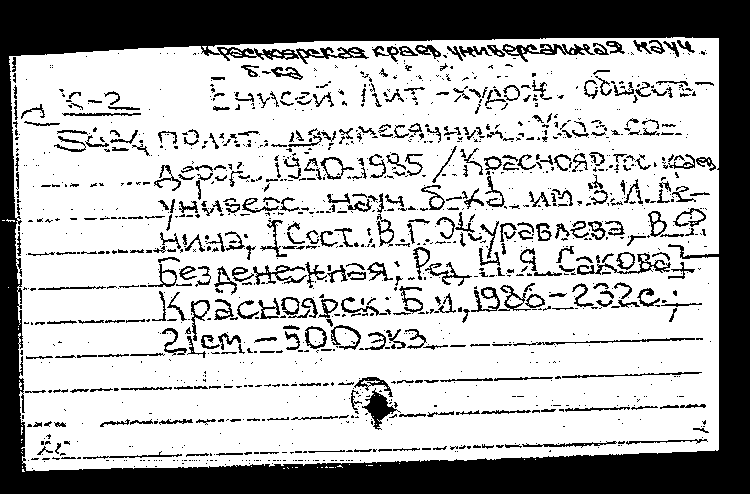 Красноярская краев. универсальная науч.
б-ка
К-2 Енисей: Лит.-худож. обществ.-
полит. двухмесячник: Указ. со-
держ., 1940-1985 / Краснояр. гос. краев.
универс. науч. б-ка им. В.И. Ле-
нина; [Сост.: В.Г. Журавлева, В.Ф.
Безденежная; Ред. Н.Я. Сакова]-
Красноярск: Б.и., 1986-232с.;
21см.-500экз.